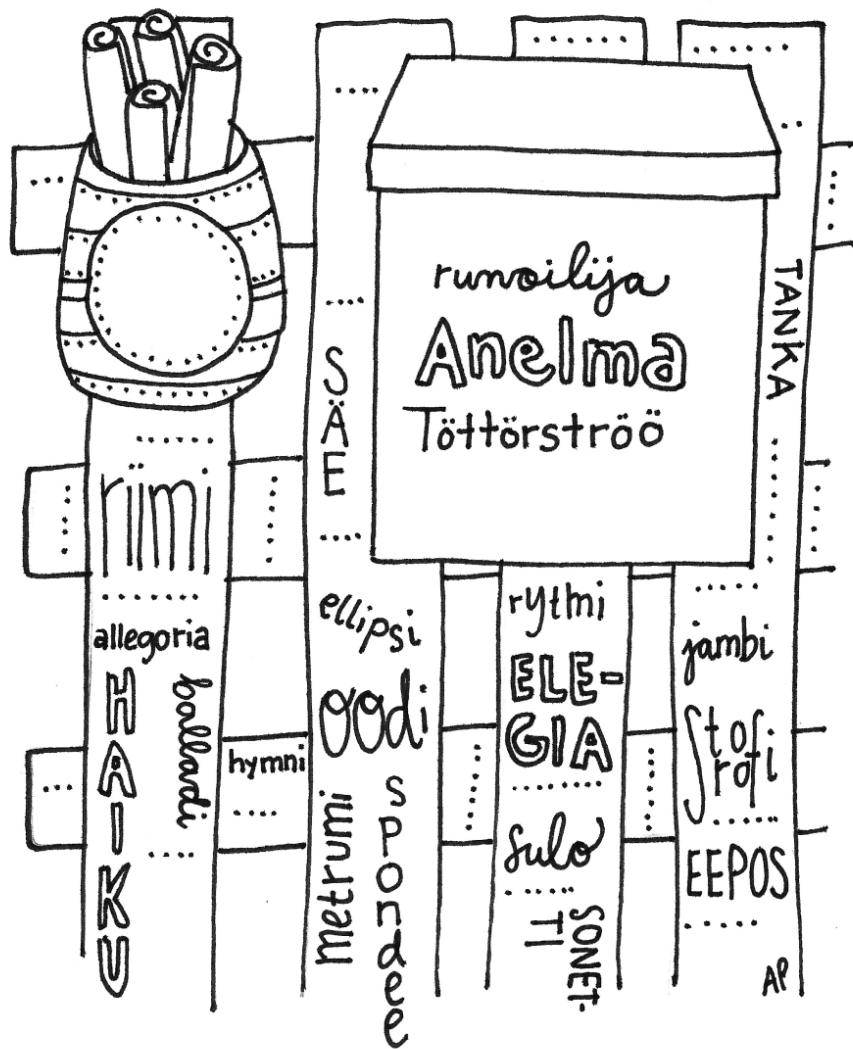 runoilija
Anelma
Töttörströö
TANKA
SÄE
riimi
allegoria
HAIKU
balladi
hymni
ellipsi
oodi
metrumi
spondee
rytmi
ELE-
GIA
sulo
SONET-
TI
jambi
Strofi
EEPOS
AP